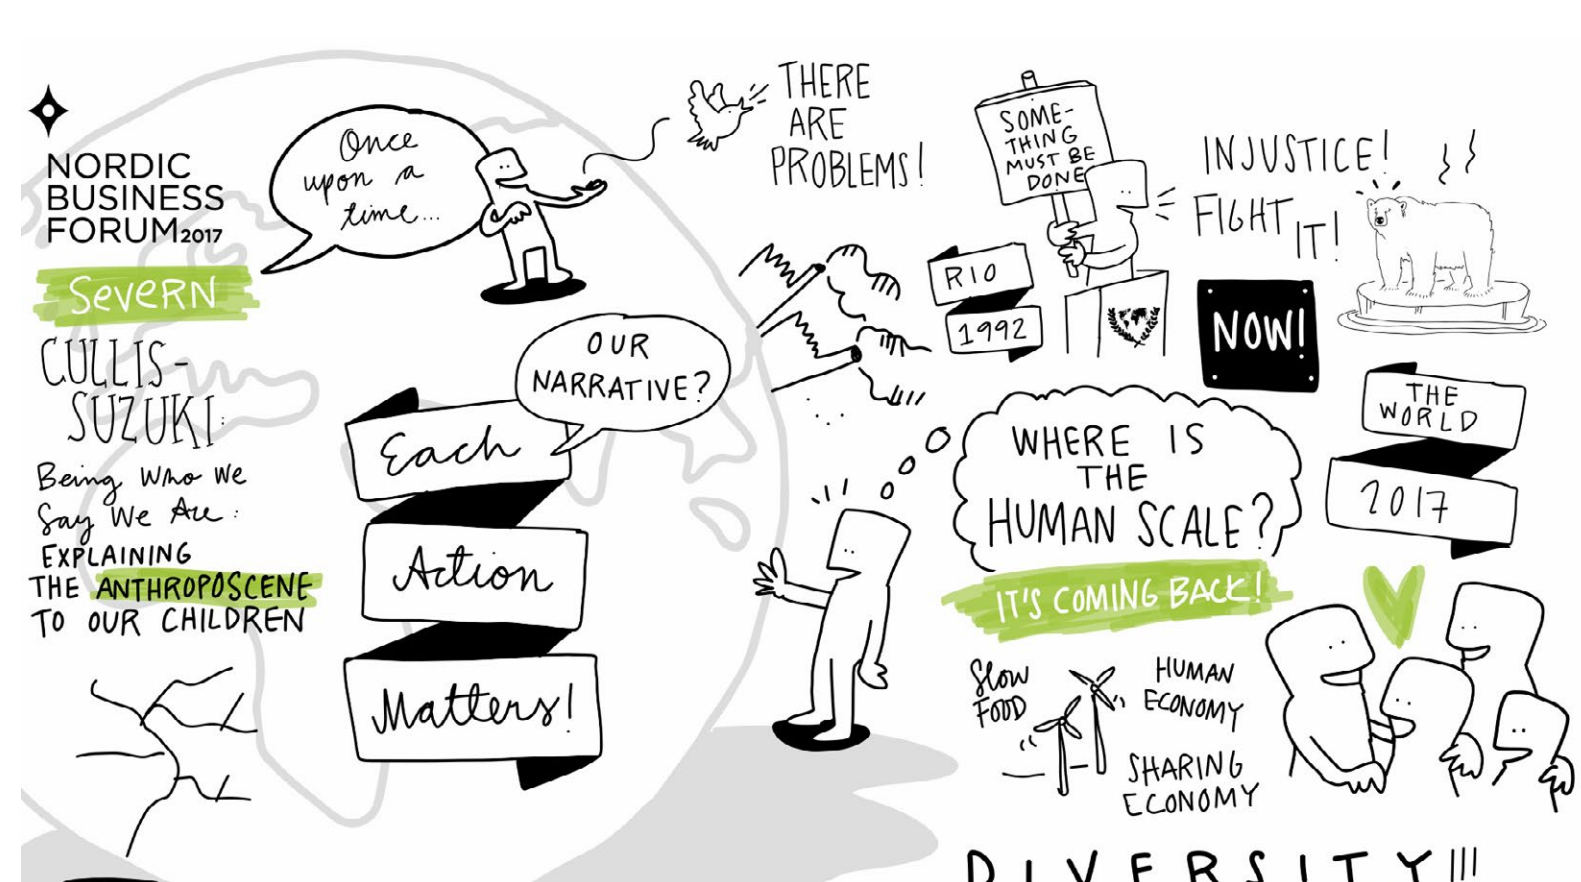 NORDIC
BUSINESS
FORUM2017
SEVERN
CULLIS-
SUZUKI:
Being Who We
Say We Are:
EXPLAINING
THE ANTHROPOSCENE
TO OUR CHILDREN
Once
upon a
time...
OUR
NARRATIVE?
Each
Action
Matters!
THERE
ARE
PROBLEMS!
SOME-
THING
MUST BE
DONE
RIO
1992
INJUSTICE!
FIGHT
IT!
NOW!
THE
WORLD
2017
WHERE IS
THE
HUMAN SCALE?
IT'S COMING BACK!
Slow
FOOD
HUMAN
ECONOMY
SHARING
ECONOMY
DIVERSITY!!!